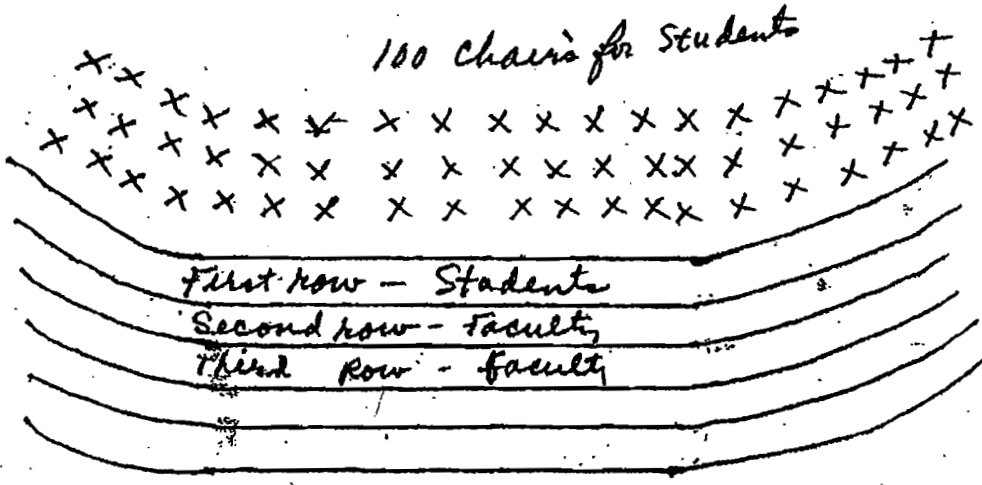 100 Chairs for Students
First row - Students
Second row - Faculty
Third Row - faculty